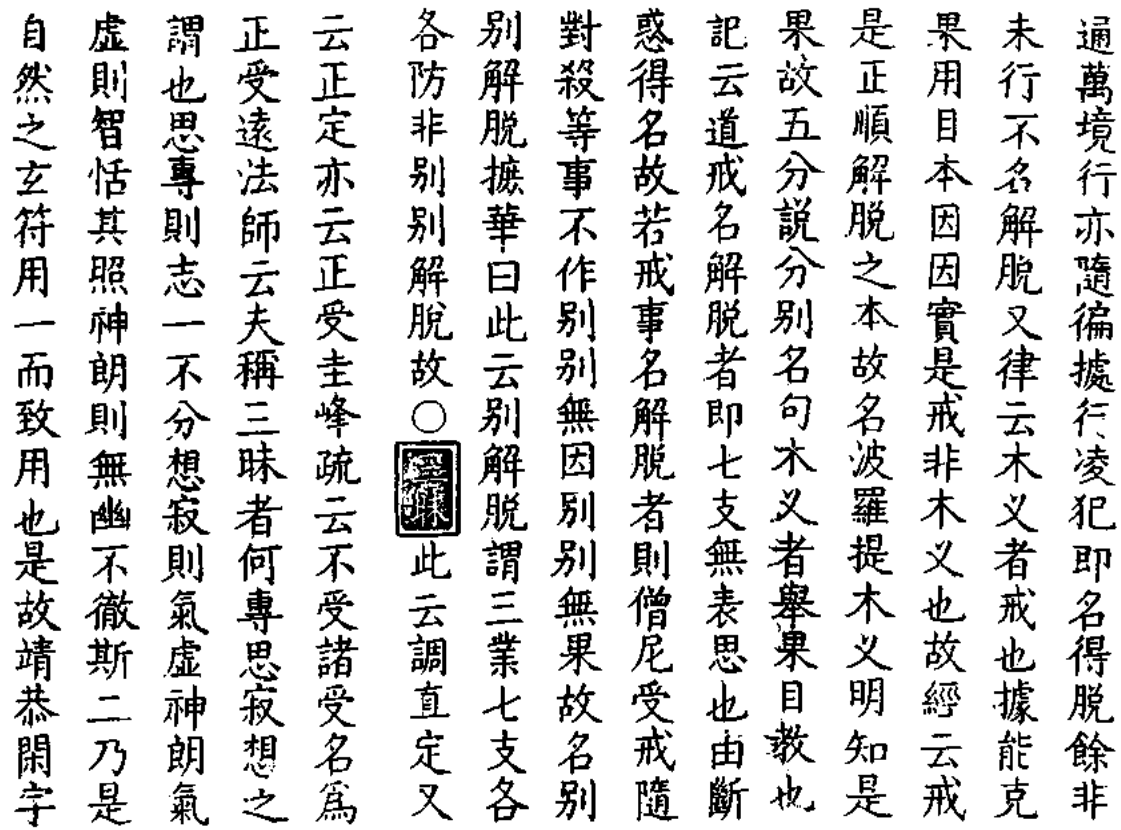 通萬境行亦隨徧據行凌犯即名得脱餘非
未行不名解脱又律云木义者戒也據能克
果用目本因因實是戒非木义也故經云戒
是正順解脱之本故名波羅提木义明知是
果故五分説分别名句木义者舉果目教也
記云道戒名解脱者即七支無表思也由斷
惑得名故若戒事名解脱者則僧尼受戒隨
對殺等事不作别别無因别别無果故名别
别解脱摭華曰此云别解脱謂三業七支各
各防非别别解脱故〇三昧此云調直定又
云正定亦云正受圭峰疏云不受諸受名爲
正受遠法師云夫稱三昧者何專思寂想之
謂也思專則志一不分想寂則氣虚神朗氣
虚則智恬其照神朗則無幽不徹斯二乃是
自然之玄符用一而致用也是故靖恭閑宇